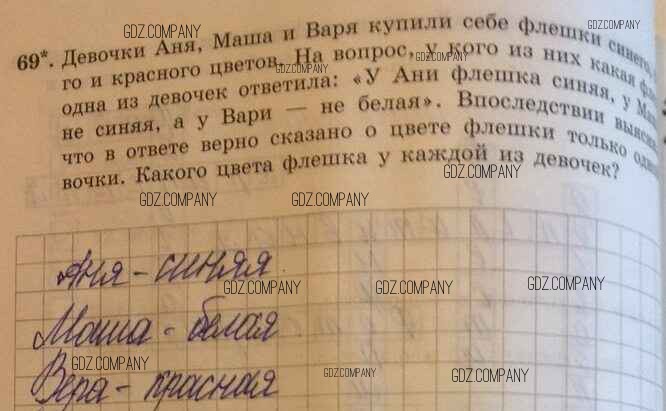 GDZ.COMPANY GDZ.COMPANY
69*. Девочки Аня, Маша и Варя купили себе флешки синего,
GDZ.COMPANY GDZ.COMPANY
го и красного цветов. На вопрос, у кого из них какая
одна из девочек ответила: «У Ани флешка синяя, у
не синяя, а у Вари — не белая». Впоследствии
что в ответе верно сказано о цвете флешки только
вочки. Какого цвета флешка у каждой из девочек?
GDZ.COMPANY
GDZ.COMPANY GDZ.COMPANY
Аня - синяя
GDZ.COMPANY GDZ.COMPANY GDZ.COMPANY
Маша - белая
GDZ.COMPANY
Вера - красная
GDZ.COMPANY GDZ.COMPANY